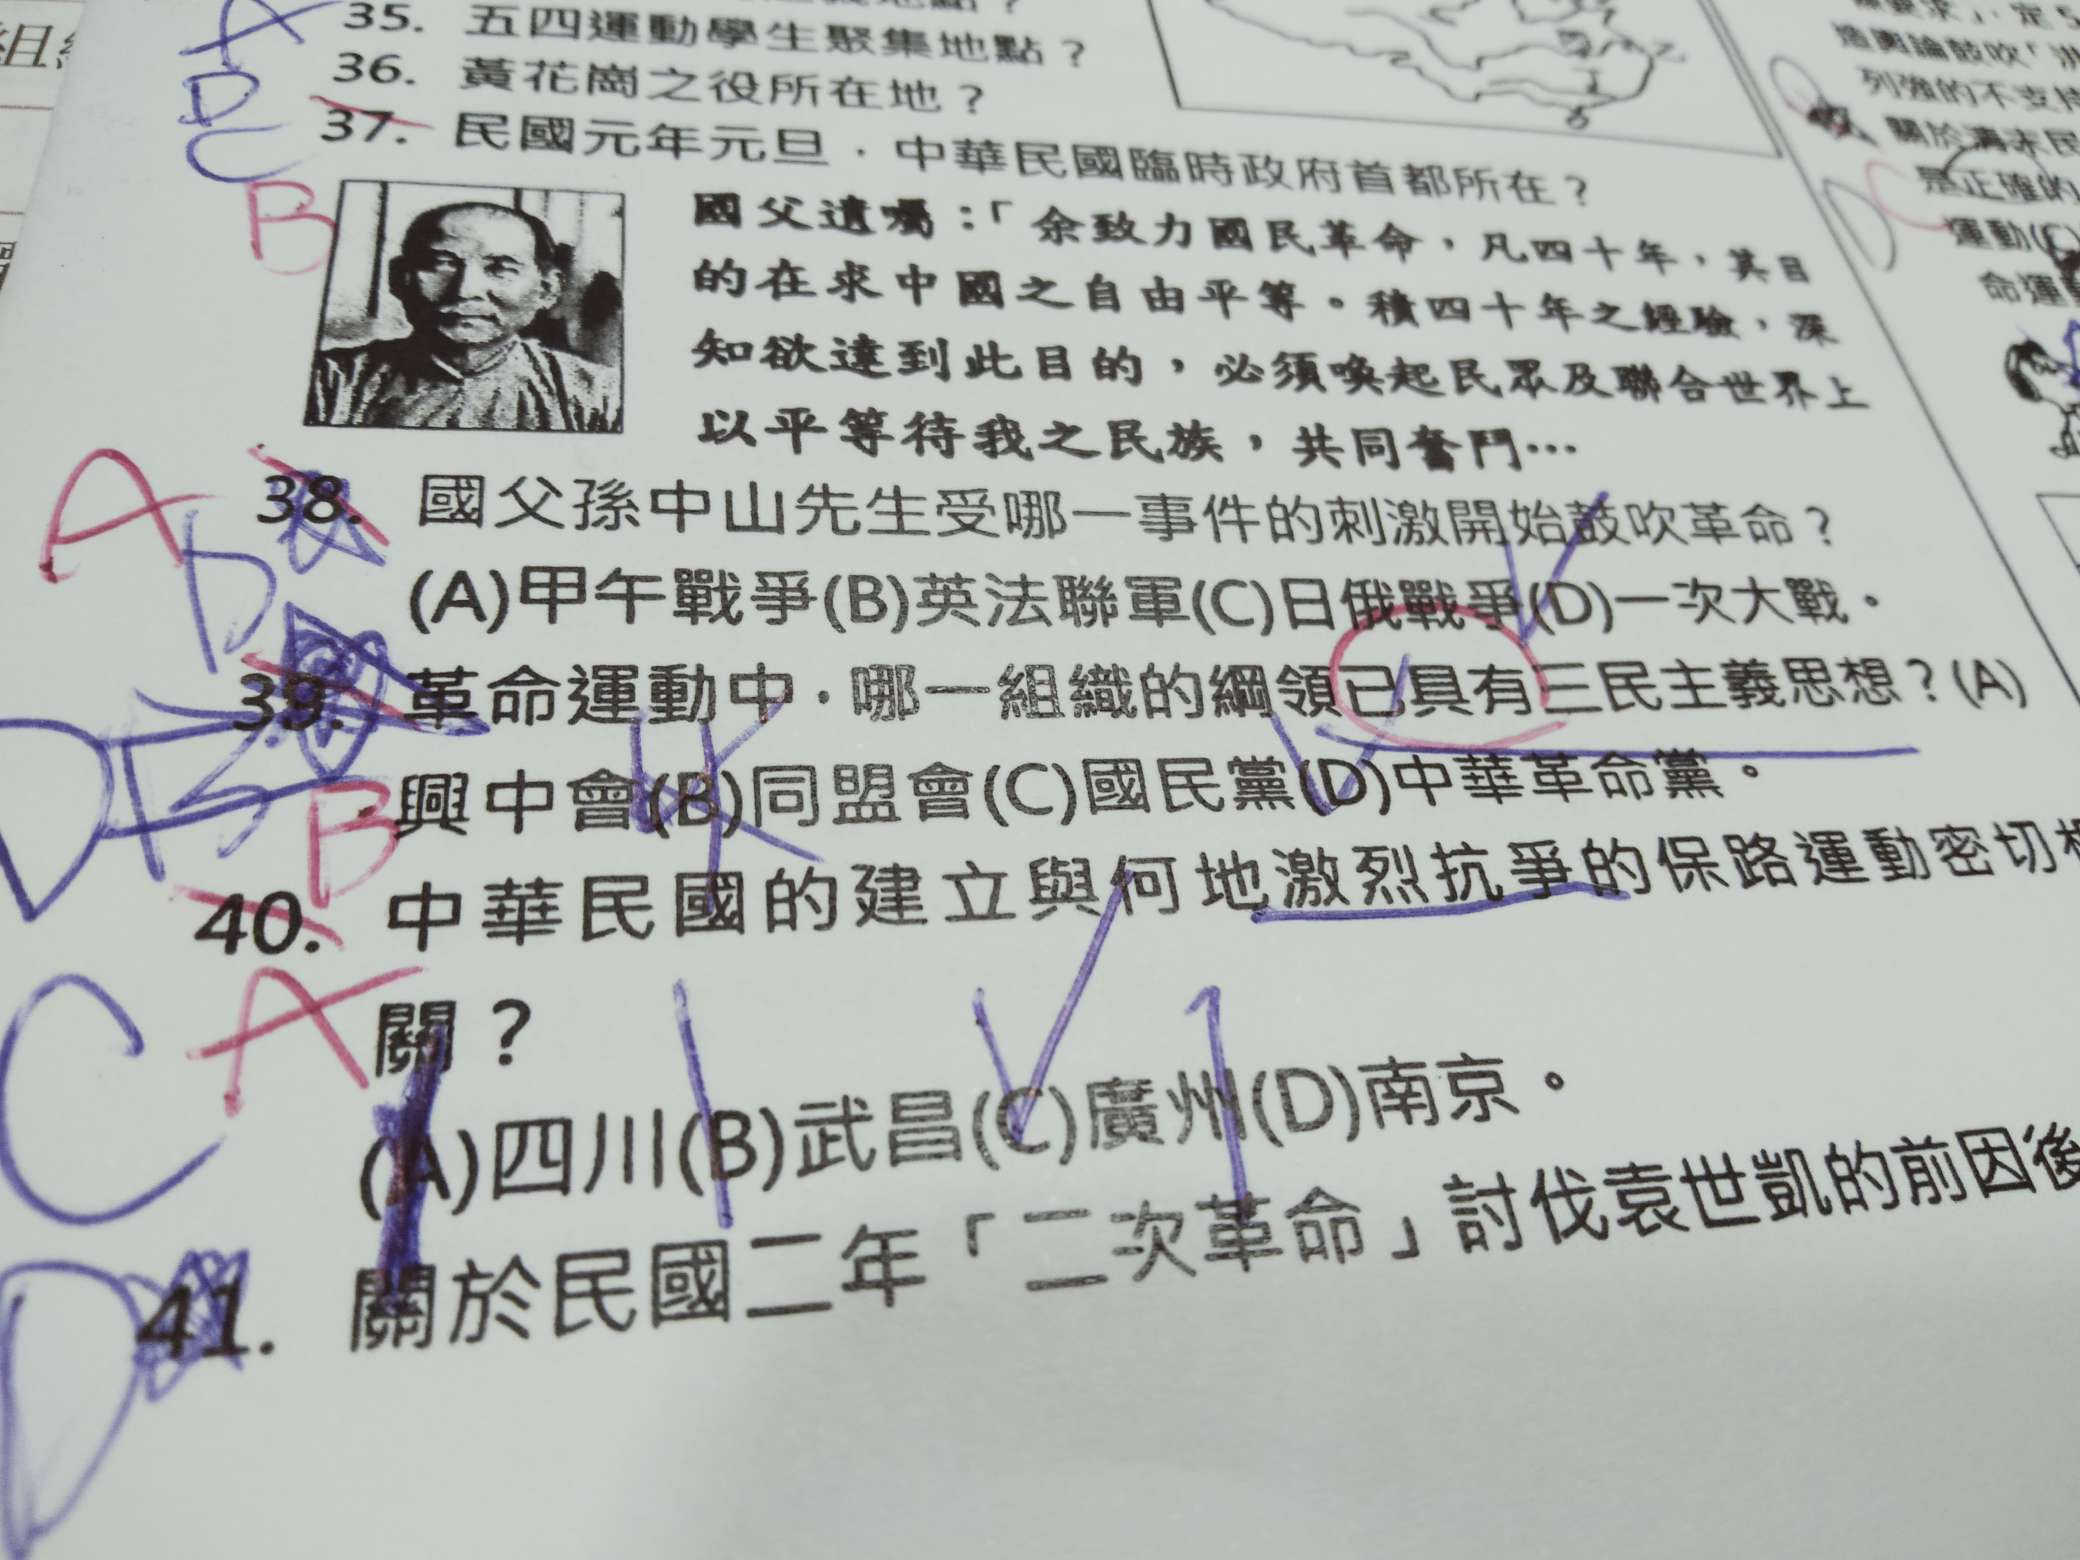 35. 五四運動學生聚集地點？
36. 黃花崗之役所在地？
37. 民國元年元旁，中華民國臨時政府首都所在？
國父遺囑：「余致力國民革命，凡四十年，其目
的在求中國之自由平等。積四十年之經驗，深
知欲達到此目的，必須喚起民眾及聯合世界上
以平等待我之民族，共同奮鬥…
38. 國父孫中山先生受哪一事件的刺激開始鼓吹革命？
(A)甲午戰爭(B)英法聯軍(C)日俄戰爭(D)一次大戰。
39. 革命運動中，哪一組織的綱領已具有三民主義思想？(A)
興中會(B)同盟會(C)國民黨(D)中華革命黨。
40. 中華民國的建立與何地激烈抗爭的保路運動密切
關？
(A)四川(B)武昌(C)廣州(D)南京。
41. 關於民國二年「二次革命」討伐袁世凱的前因後
A
D
C
B
A
D
D
B
B
C
A
D
列強的不支持
是正確的
運動(C)
命運